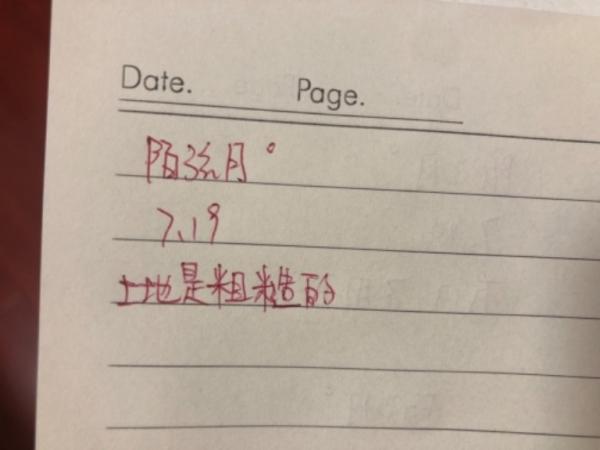 Date. Page.
陌弦月。
7.19
土地是粗糙的